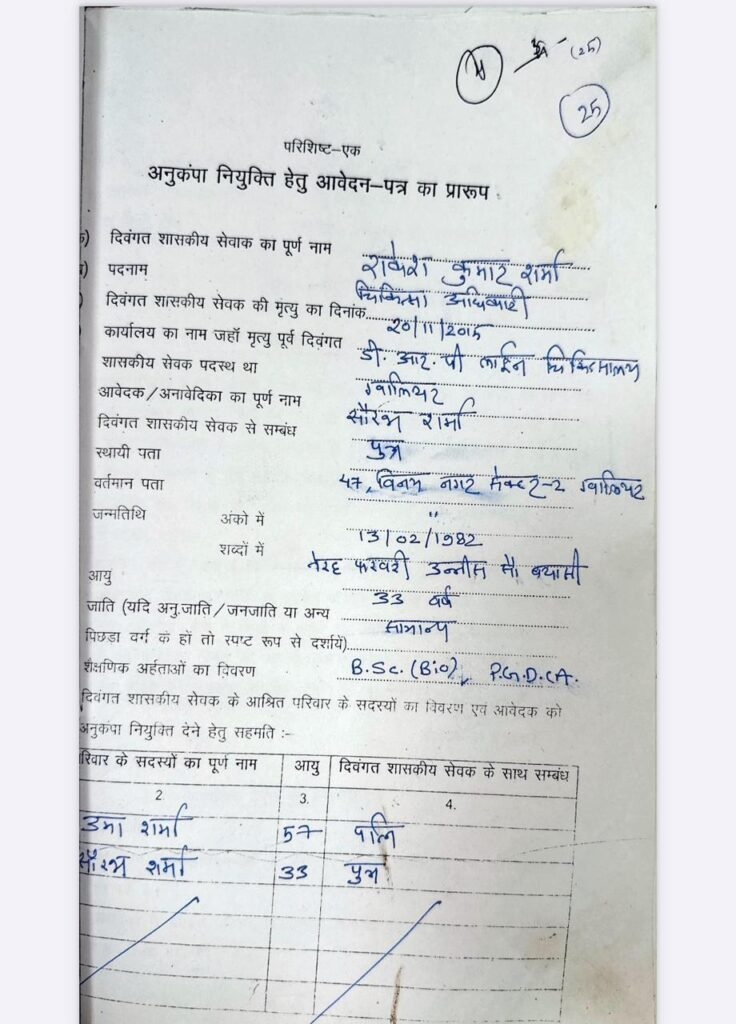 (25)
25
परिशिष्ट-एक
अनुकंपा नियुक्ति हेतु आवेदन-पत्र का प्रारूप
दिवंगत शासकीय सेवाक का पूर्ण नाम राकेश कुमार शर्मा
पदनाम चिकित्सा अधिकारी
दिवंगत शासकीय सेवक की मृत्यु का दिनांक 20/11/2015
कार्यालय का नाम जहॉ मृत्यु पूर्व दिवंगत डी. आर. पी लाईन चिकित्सालय
शासकीय सेवक पदस्थ था ग्वालियर
आवेदक/अनावेदिका का पूर्ण नाम सौरभ शर्मा
दिवंगत शासकीय सेवक से सम्बंध पुत्र
स्थायी पता 47, विनय नगर सेक्टर-2 ग्वालियर
वर्तमान पता "
जन्मतिथि अंको में 13/02/1982
शब्दों में तेरह फरवरी उन्नीस सौ बयासी
आयु 33 वर्ष
जाति (यदि अनु.जाति/जनजाति या अन्य सामान्य
पिछडा वर्ग के हों तो स्पष्ट रूप से दर्शायें)
शैक्षणिक अर्हताओं का विवरण B.Sc. (Bio), P.G.D.CA.
दिवंगत शासकीय सेवक के आश्रित परिवार के सदस्यों का विवरण एवं आवेदक को
अनुकंपा नियुक्ति देने हेतु सहमति :-
रिवार के सदस्यों का पूर्ण नाम आयु दिवंगत शासकीय सेवक के साथ सम्बंध
2 3. 4.
उमा शर्मा 57 पत्नि
सौरभ शर्मा 33 पुत्र